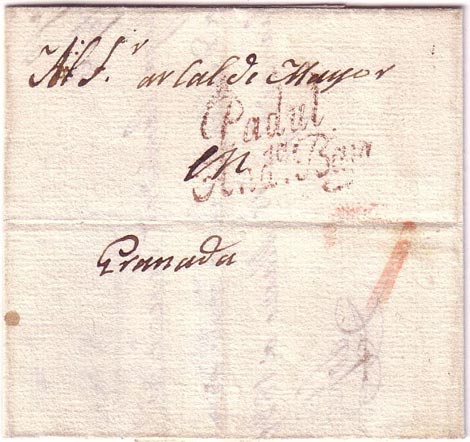 Al S.r Alcalde Mayor
Padul
en
And.a Baja
Granada